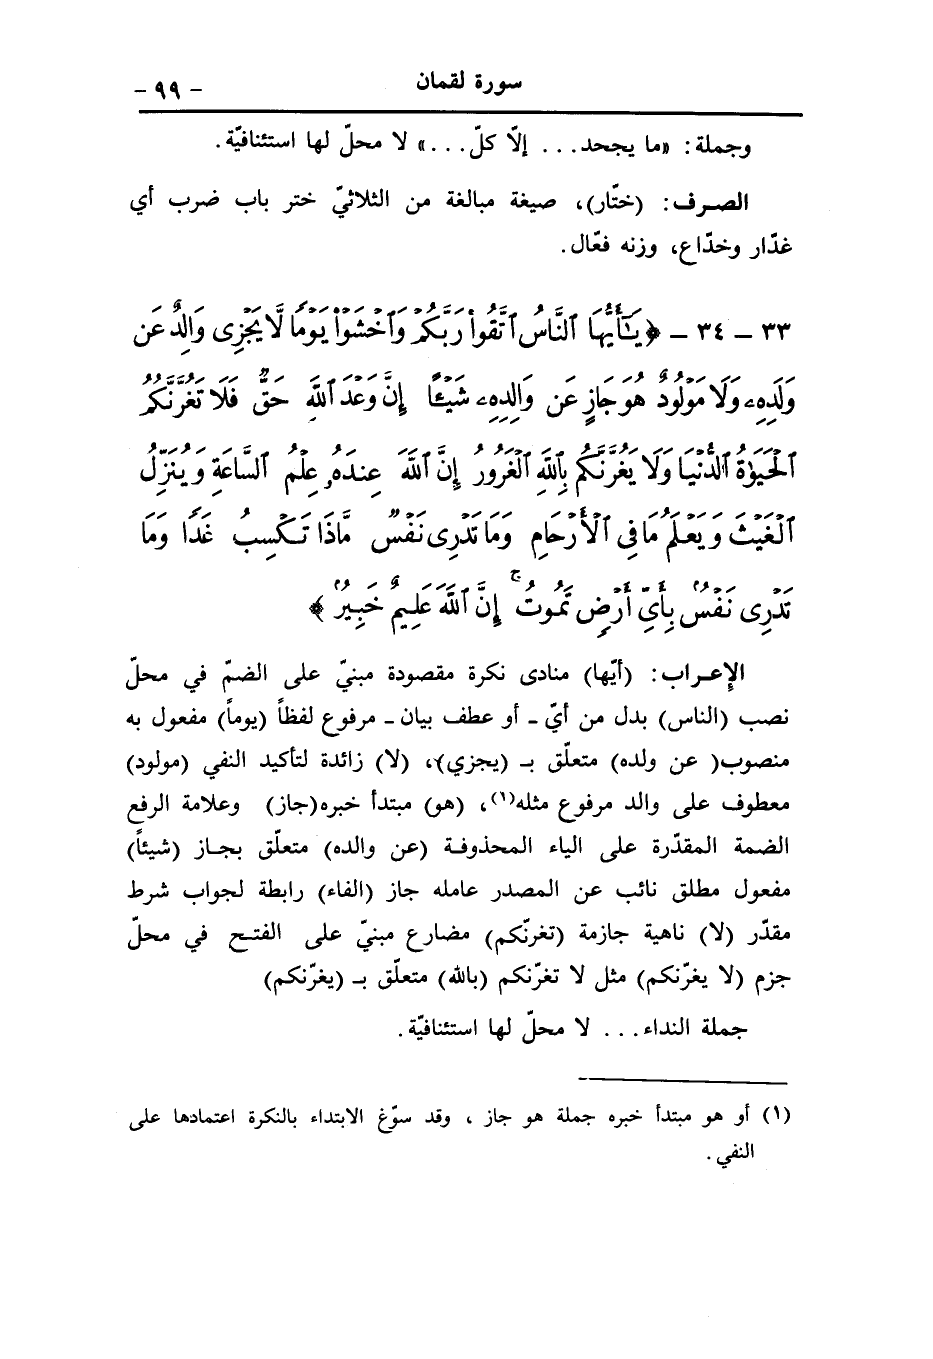 سورة لقمان
- ٩٩ -
وجملة: «ما يجحد... إلاّ كلّ...» لا محلّ لها استئنافيّة.
الصرف: (ختّار)، صيغة مبالغة من الثلاثيّ ختر باب ضرب أي
غدّار وخدّاع، وزنه فعّال.
٣٣ - ٣٤ - ﴿يَٰٓأَيُّهَا ٱلنَّاسُ ٱتَّقُوا۟ رَبَّكُمْ وَٱخْشَوْا۟ يَوْمًا لَّا يَجْزِى وَالِدٌ عَن
وَلَدِهِۦ وَلَا مَوْلُودٌ هُوَ جَازٍ عَن وَالِدِهِۦ شَيْـًٔا إِنَّ وَعْدَ ٱللَّهِ حَقٌّ فَلَا تَغُرَّنَّكُمُ
ٱلْحَيَوٰةُ ٱلدُّنْيَا وَلَا يَغُرَّنَّكُم بِٱللَّهِ ٱلْغَرُورُ إِنَّ ٱللَّهَ عِندَهُۥ عِلْمُ ٱلسَّاعَةِ وَيُنَزِّلُ
ٱلْغَيْثَ وَيَعْلَمُ مَا فِى ٱلْأَرْحَامِ وَمَا تَدْرِى نَفْسٌ مَّاذَا تَكْسِبُ غَدًا وَمَا
تَدْرِى نَفْسٌۢ بِأَىِّ أَرْضٍ تَمُوتُ ۚ إِنَّ ٱللَّهَ عَلِيمٌ خَبِيرٌۢ﴾
الإعراب: (أيّها) منادى نكرة مقصودة مبنيّ على الضمّ في محلّ
نصب (الناس) بدل من أيّ - أو عطف بيان - مرفوع لفظاً (يوماً) مفعول به
منصوب( عن ولده) متعلّق بـ (يجزي)، (لا) زائدة لتأكيد النفي (مولود)
معطوف على والد مرفوع مثله(١)، (هو) مبتدأ خبره(جاز) وعلامة الرفع
الضمة المقدّرة على الياء المحذوفة (عن والده) متعلّق بجاز (شيئاً)
مفعول مطلق نائب عن المصدر عامله جاز (الفاء) رابطة لجواب شرط
مقدّر (لا) ناهية جازمة (تغرنّكم) مضارع مبنيّ على الفتح في محلّ
جزم (لا يغرّنكم) مثل لا تغرّنكم (بالله) متعلّق بـ (يغرّنكم)
جملة النداء... لا محلّ لها استئنافيّة.
(١) أو هو مبتدأ خبره جملة هو جاز ، وقد سوّغ الابتداء بالنكرة اعتمادها على
النفي.